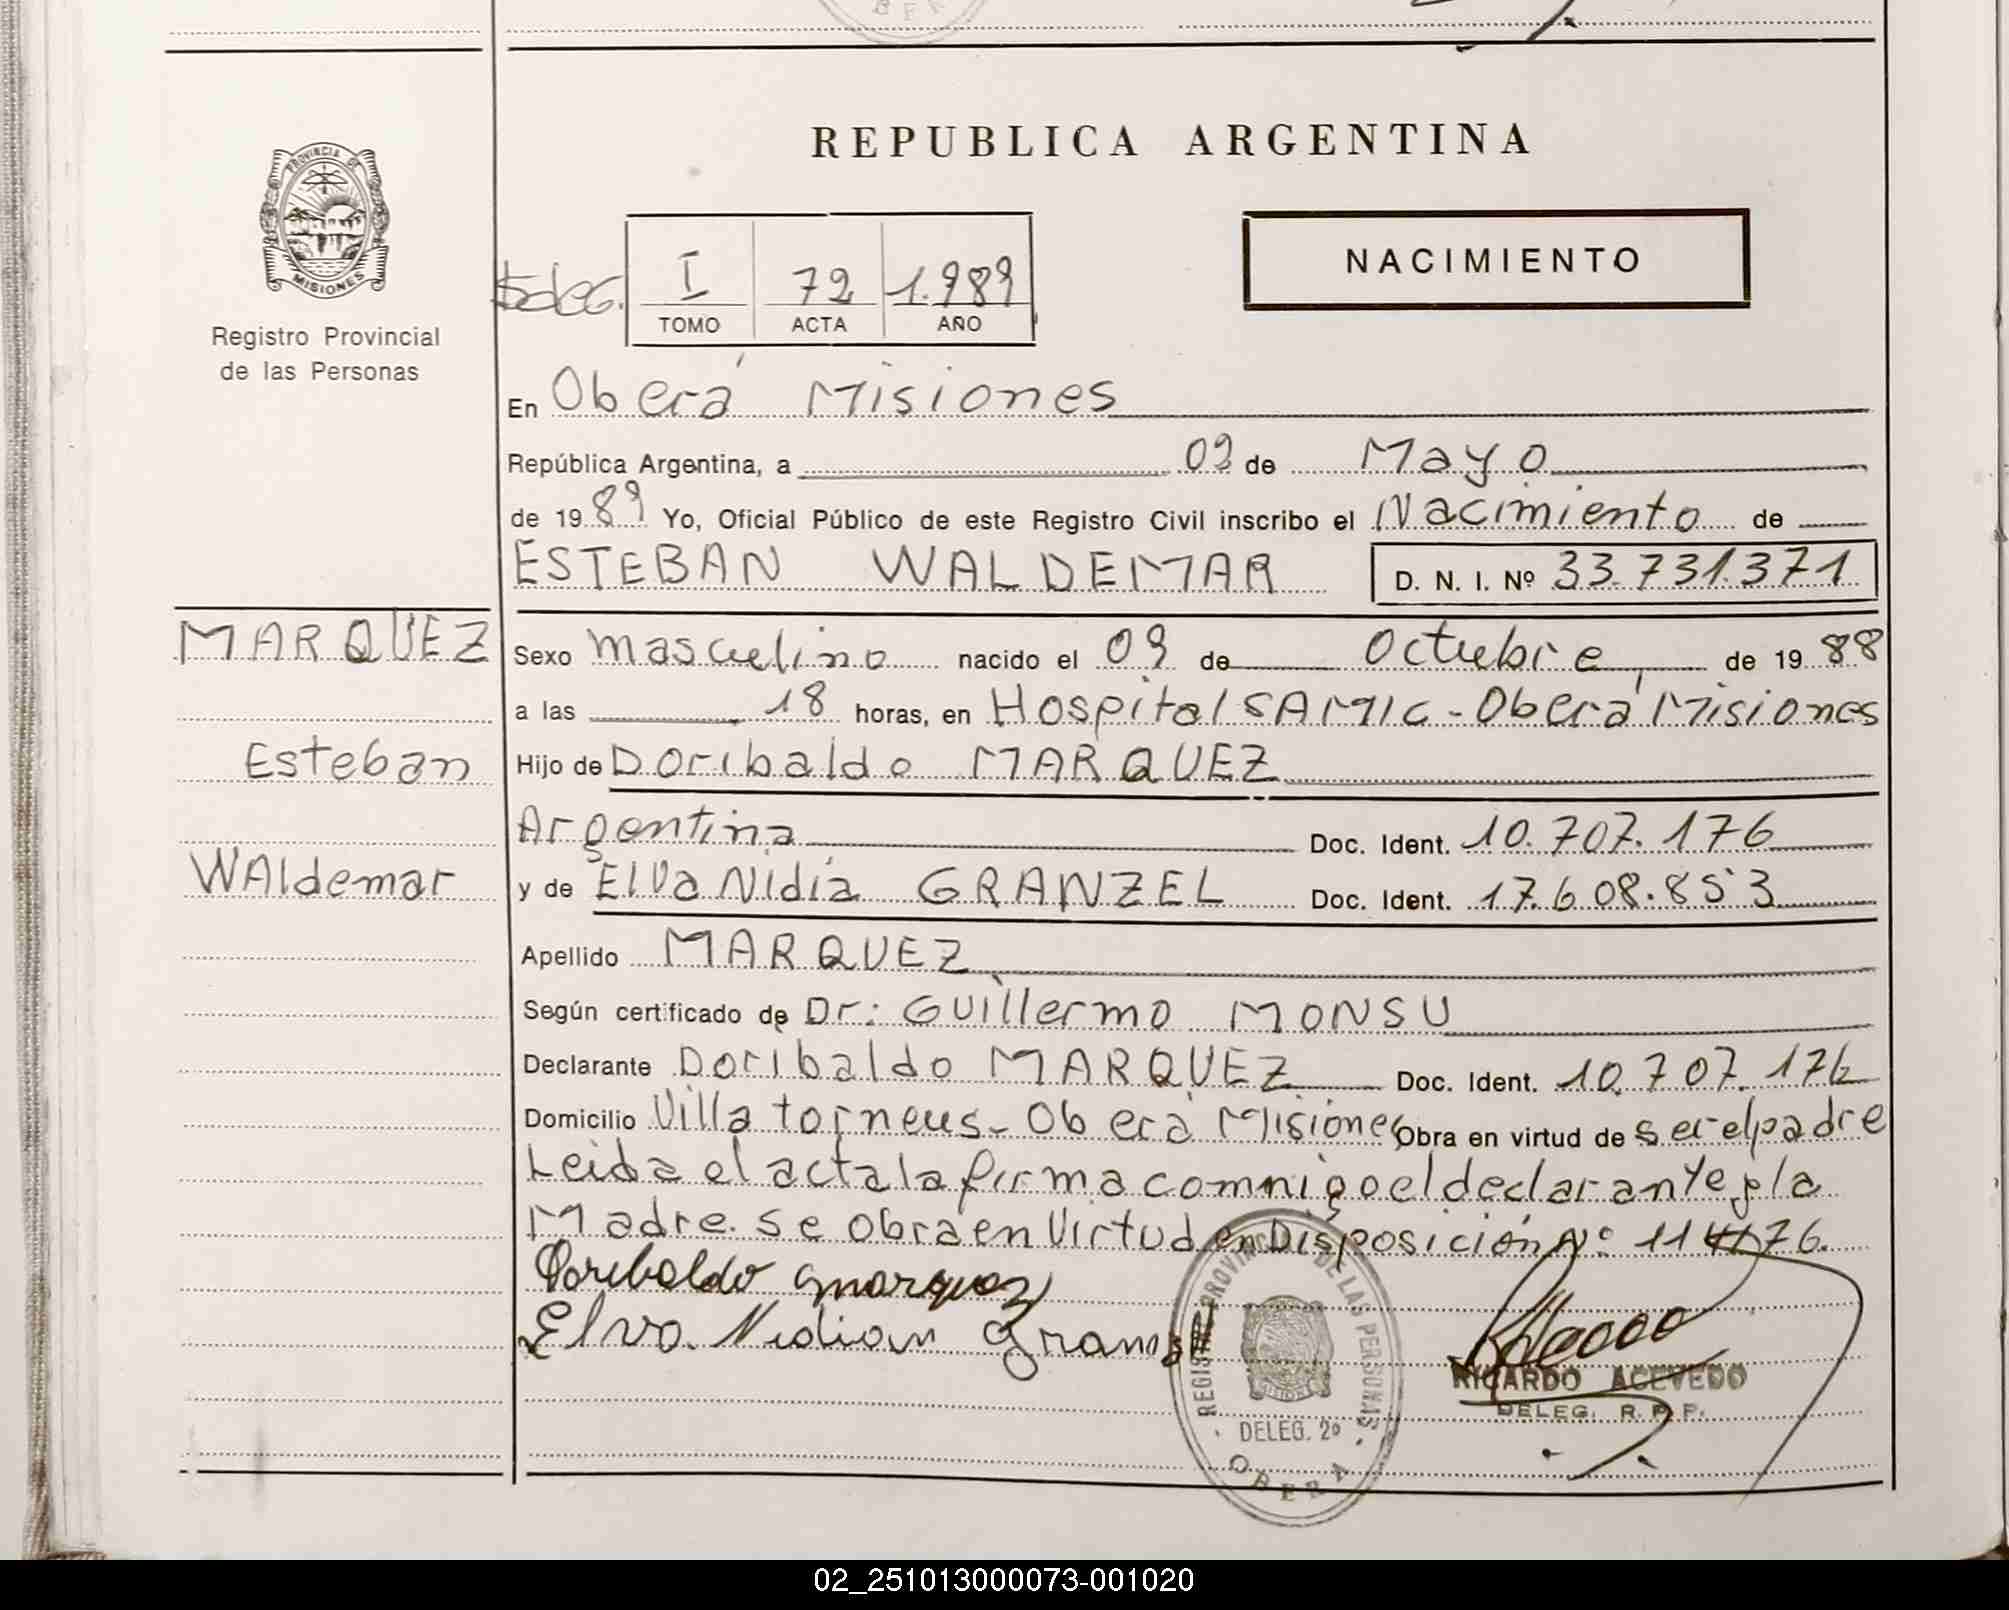 BER
REPUBLICA ARGENTINA
PROVINCIA DE
MISIONES
NACIMIENTO
I 72 1.989
TOMO ACTA AÑO
Registro Provincial
de las Personas
En Oberá Misiones
República Argentina, a 09 de Mayo
de 1989 Yo, Oficial Público de este Registro Civil inscribo el Nacimiento de
ESTEBAN WALDEMAR D. N. I. Nº 33.731.371
MARQUEZ
Sexo masculino nacido el 09 de Octubre de 1988
a las 18 horas, en Hospital SAMIC - Oberá Misiones
Esteban
Hijo de Doribaldo MARQUEZ
Argentina Doc. Ident. 10.707.176
Waldemar
y de Elva Nidia GRANZEL Doc. Ident. 17.608.853
Apellido MARQUEZ
Según certificado de Dr: Guillermo MONSU
Declarante Doribaldo MARQUEZ Doc. Ident. 10.707.176
Domicilio Villa torneus - Oberá Misiones Obra en virtud de ser el padre
Leida el acta la firma comnigo el declarante y la
Madre. se obra en Virtud en Disposición Nº 114/76.
Doribaldo marquez
Elva. Nidian
REGISTRO PROVINCIAL DE LAS PERSONAS
MISIONES
DELEG. 2º
OBERA
RICARDO ACEVEDO
DELEG. R. P. P.
02_251013000073-001020